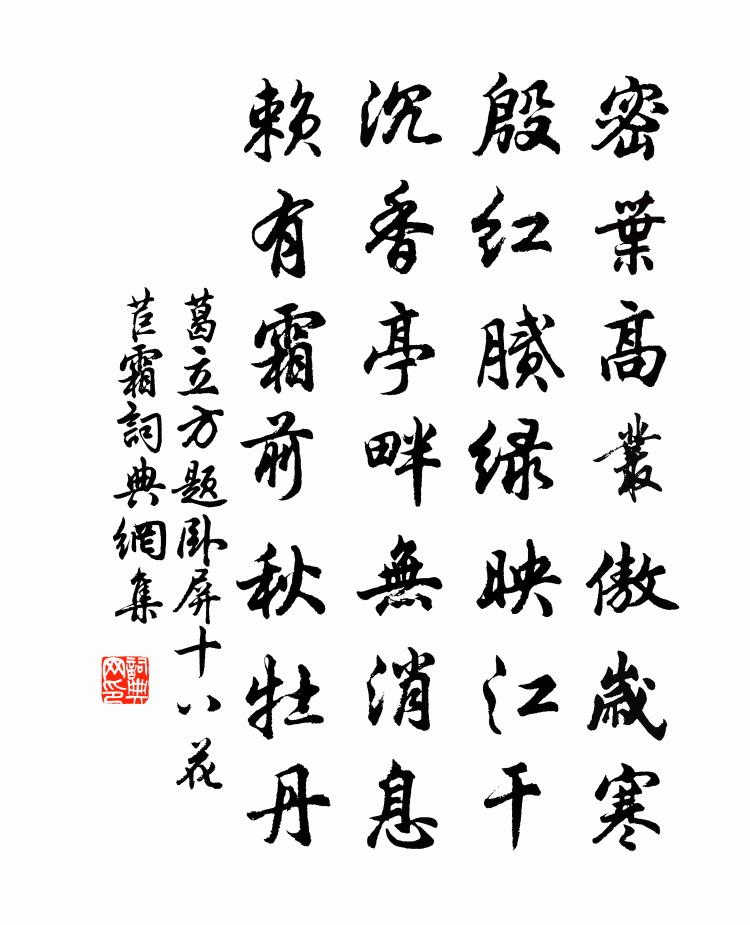 密葉高叢傲歲寒
殷紅膩绿映江干
沉香亭畔無消息
赖有霜前秋牡丹
葛立方题卧屏十八花
苣霜詞典網集
詞典网印